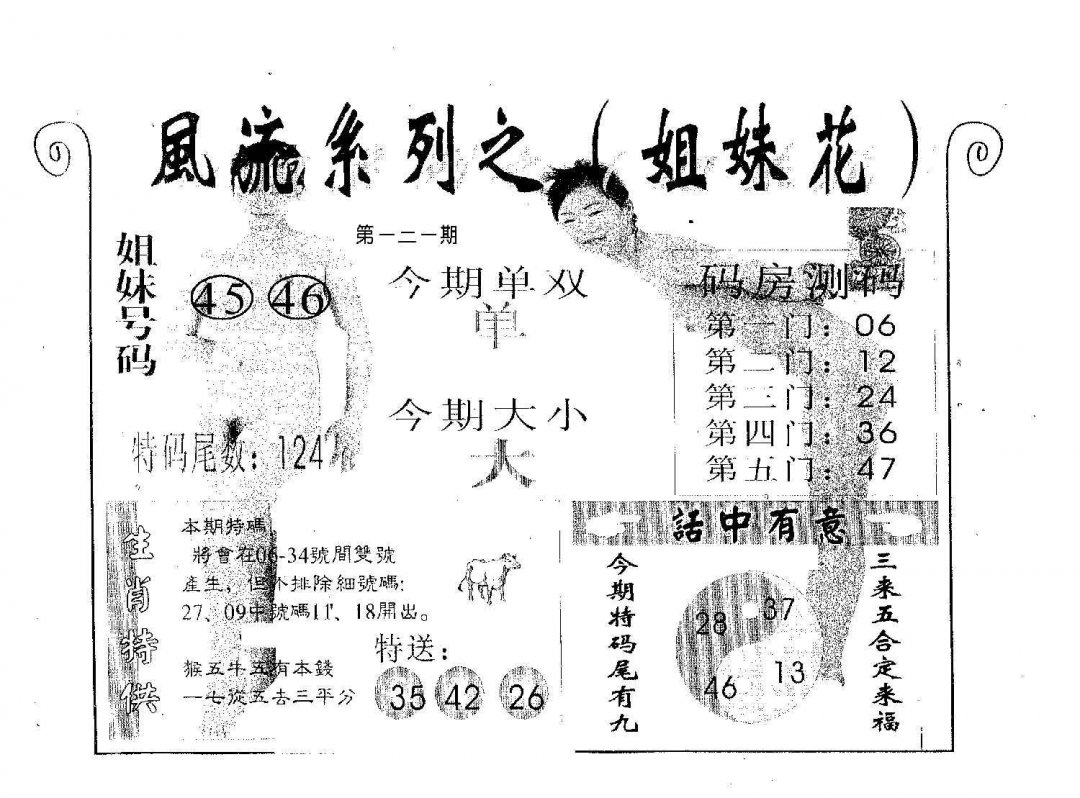 風流系列之（姐妹花）
第一二一期
姐妹号码
45 46
今期单双
单
今期大小
大
特码尾数：124
码房测码
第一门：06
第二门：12
第三门：24
第四门：36
第五门：47
生肖特供
本期特碼，
將會在06-34號間雙號
產生，但不排除細號碼：
27、09中號碼11、18開出。
猴五牛五有本錢
一七從五去三平分
特送：
35 42 26
話中有意
今期特码尾有九
28 37
46 13
三来五合定来福